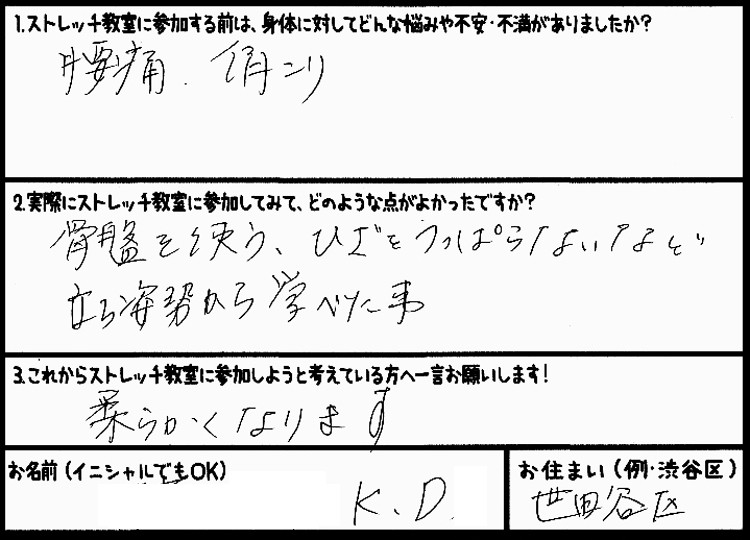 1.ストレッチ教室に参加する前は、身体に対してどんな悩みや不安・不満がありましたか?
腰痛.肩こり
2.実際にストレッチ教室に参加してみて、どのような点がよかったですか?
骨盤を使う、ひざをつっぱらないなど
立ち姿勢から学べた事
3.これからストレッチ教室に参加しようと考えている方へ一言お願いします!
柔らかくなります
お名前(イニシャルでもOK)
K.D.
お住まい(例・渋谷区)
世田谷区